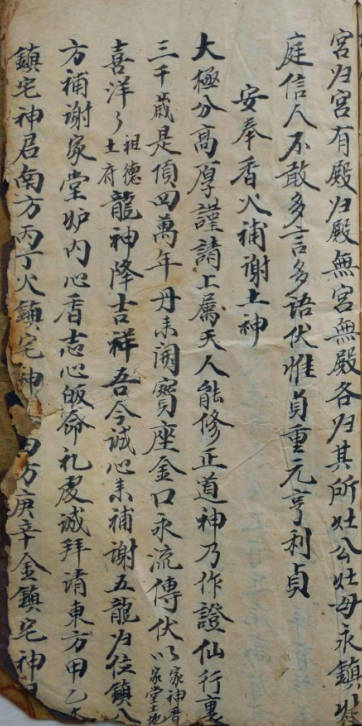 宮归宮有殿归殿無宮無殿各归其所灶公灶母永鎮灶
庭信人不敢多言多語伏惟貞重元亨利貞
安奉香火補謝土神
大極分高厚謹請上属天人能修正道神乃作證仙行裏
三千歲是價四萬年丹未開寳座金口永流傳伏以家神香家堂土地
喜洋々祖德土府龍神降吉祥吾今誠心来補謝五龍归位鎮八
方補謝家堂炉內心香志心皈命礼虔誠拜請東方甲乙木
鎮宅神君南方丙丁火鎮宅神 西方庚辛金鎮宅神君